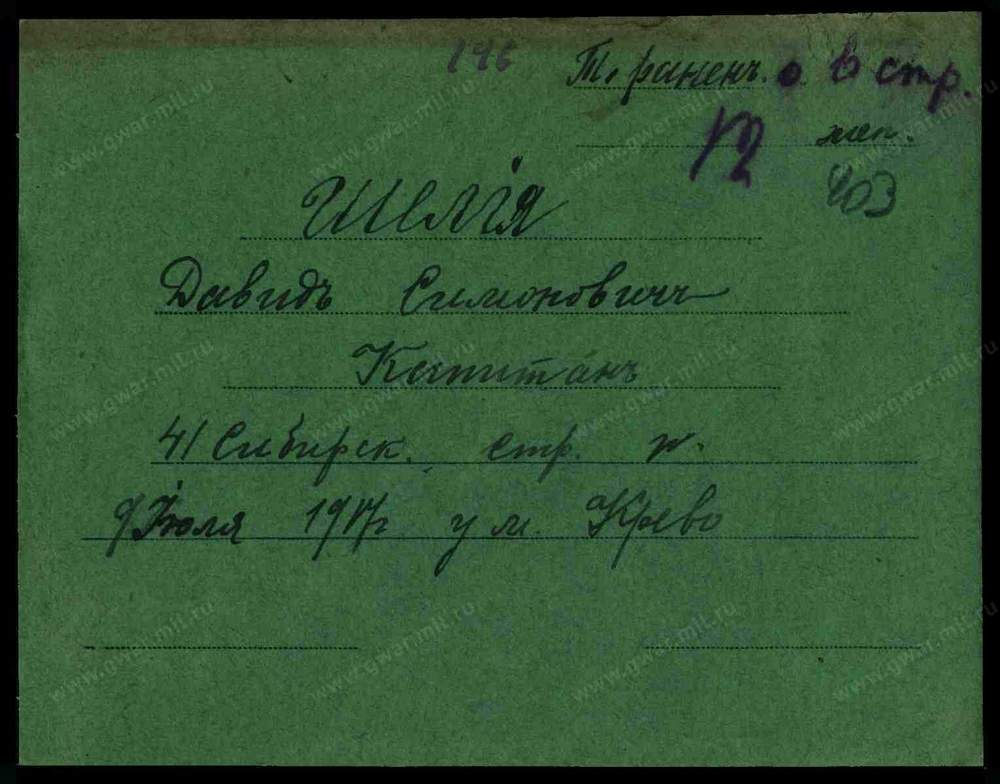 146 Т. раненъ. о. в стр.
12 жен.
403
Шелія
Давидъ Симоновичъ
Капитанъ
41 Сибирск. стр. п.
9 Іюля 1917г у м. Крево
www.gwar.mil.ru